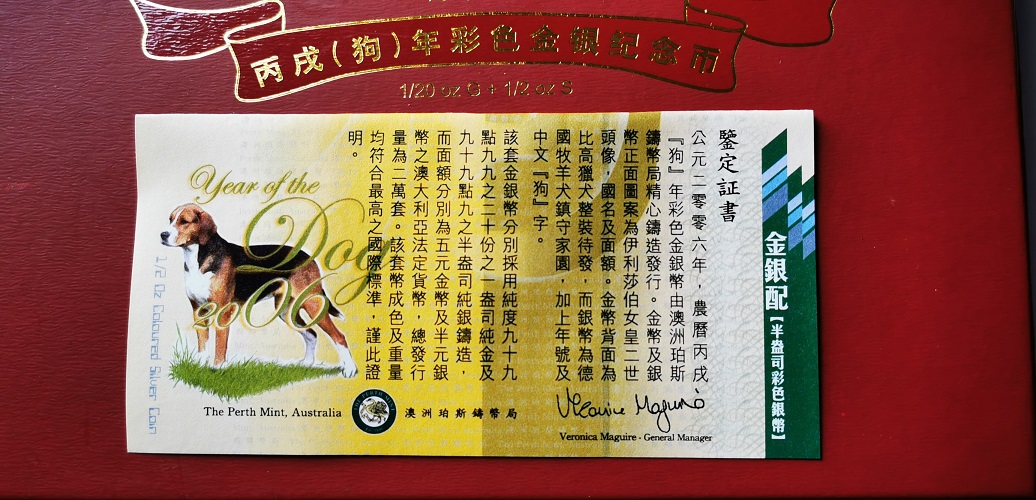 丙戌(狗)年彩色金銀紀念币
1/20 oz G + 1/2 oz S
金銀配【半盎司彩色銀幣】
鑒定証書
公元二零零六年，農曆丙戌
『狗』年彩色金銀幣由澳洲珀斯
鑄幣局精心鑄造發行。金幣及銀
幣正面圖案為伊利莎伯女皇二世
頭像、國名及面額。金幣背面為
比高獵犬整裝待發，而銀幣為德
國牧羊犬鎮守家園，加上年號及
中文『狗』字。
該套金銀幣分別採用純度九十九
點九九之二十份之一盎司純金及
九十九點九之半盎司純銀鑄造，
而面額分別為五元金幣及半元銀
幣之澳大利亞法定貨幣，總發行
量為二萬套。該套幣成色及重量
均符合最高之國際標準，謹此證
明。
Year of the
Dog
2006
1/2 Oz Coloured Silver Coin
The Perth Mint, Australia
澳洲珀斯鑄幣局
Veronica Maguire
Veronica Maguire - General Manager